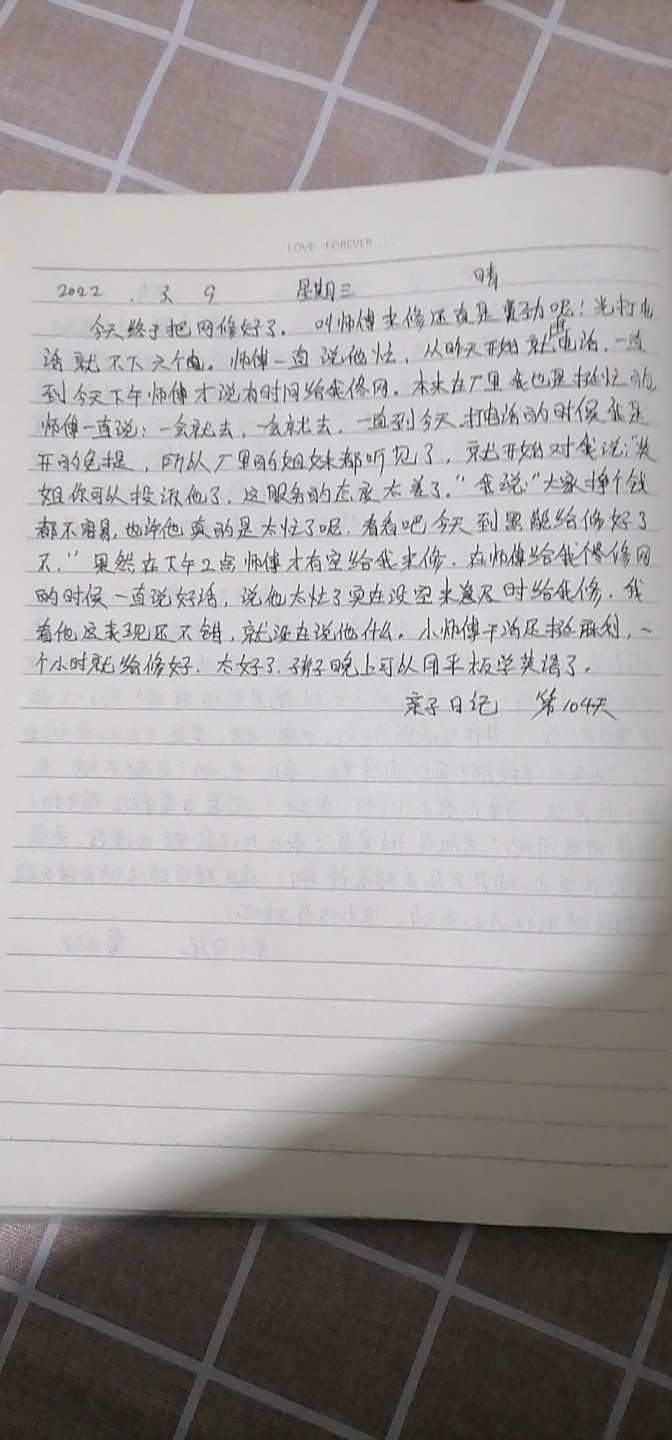 LOVE FOREVER...
2022 . 3. 9. 星期三 晴
今天终于把网修好了. 叫师傅来修还真是费劲呢! 光打电
话就不下六个. 师傅一直说他忙, 从昨天开始就打电话, 一直
到今天下午师傅才说有时间给我修网. 本来在厂里我也是挺忙的,
师傅一直说: 一会就去, 一会就去, 一直到今天. 打电话的时候我是
开的免提, 所以厂里的姐妹都听见了, 就开始对我说: "
姐你可以投诉他了, 这服务的态度太差了." 我说: "大家挣个钱
都不容易, 也许他真的是太忙了呢. 看看吧今天到黑能给修好了
不." 果然在下午2点师傅才有空给我来修. 在师傅给我修网
的时候一直说好话, 说他太忙了实在没空来及时给我修. 我
看他这表现还不错, 就没在说他什么. 小师傅干活还挺麻利, 一
个小时就给修好. 太好了. 孩子晚上可以用平板学英语了.
亲子日记 第104天